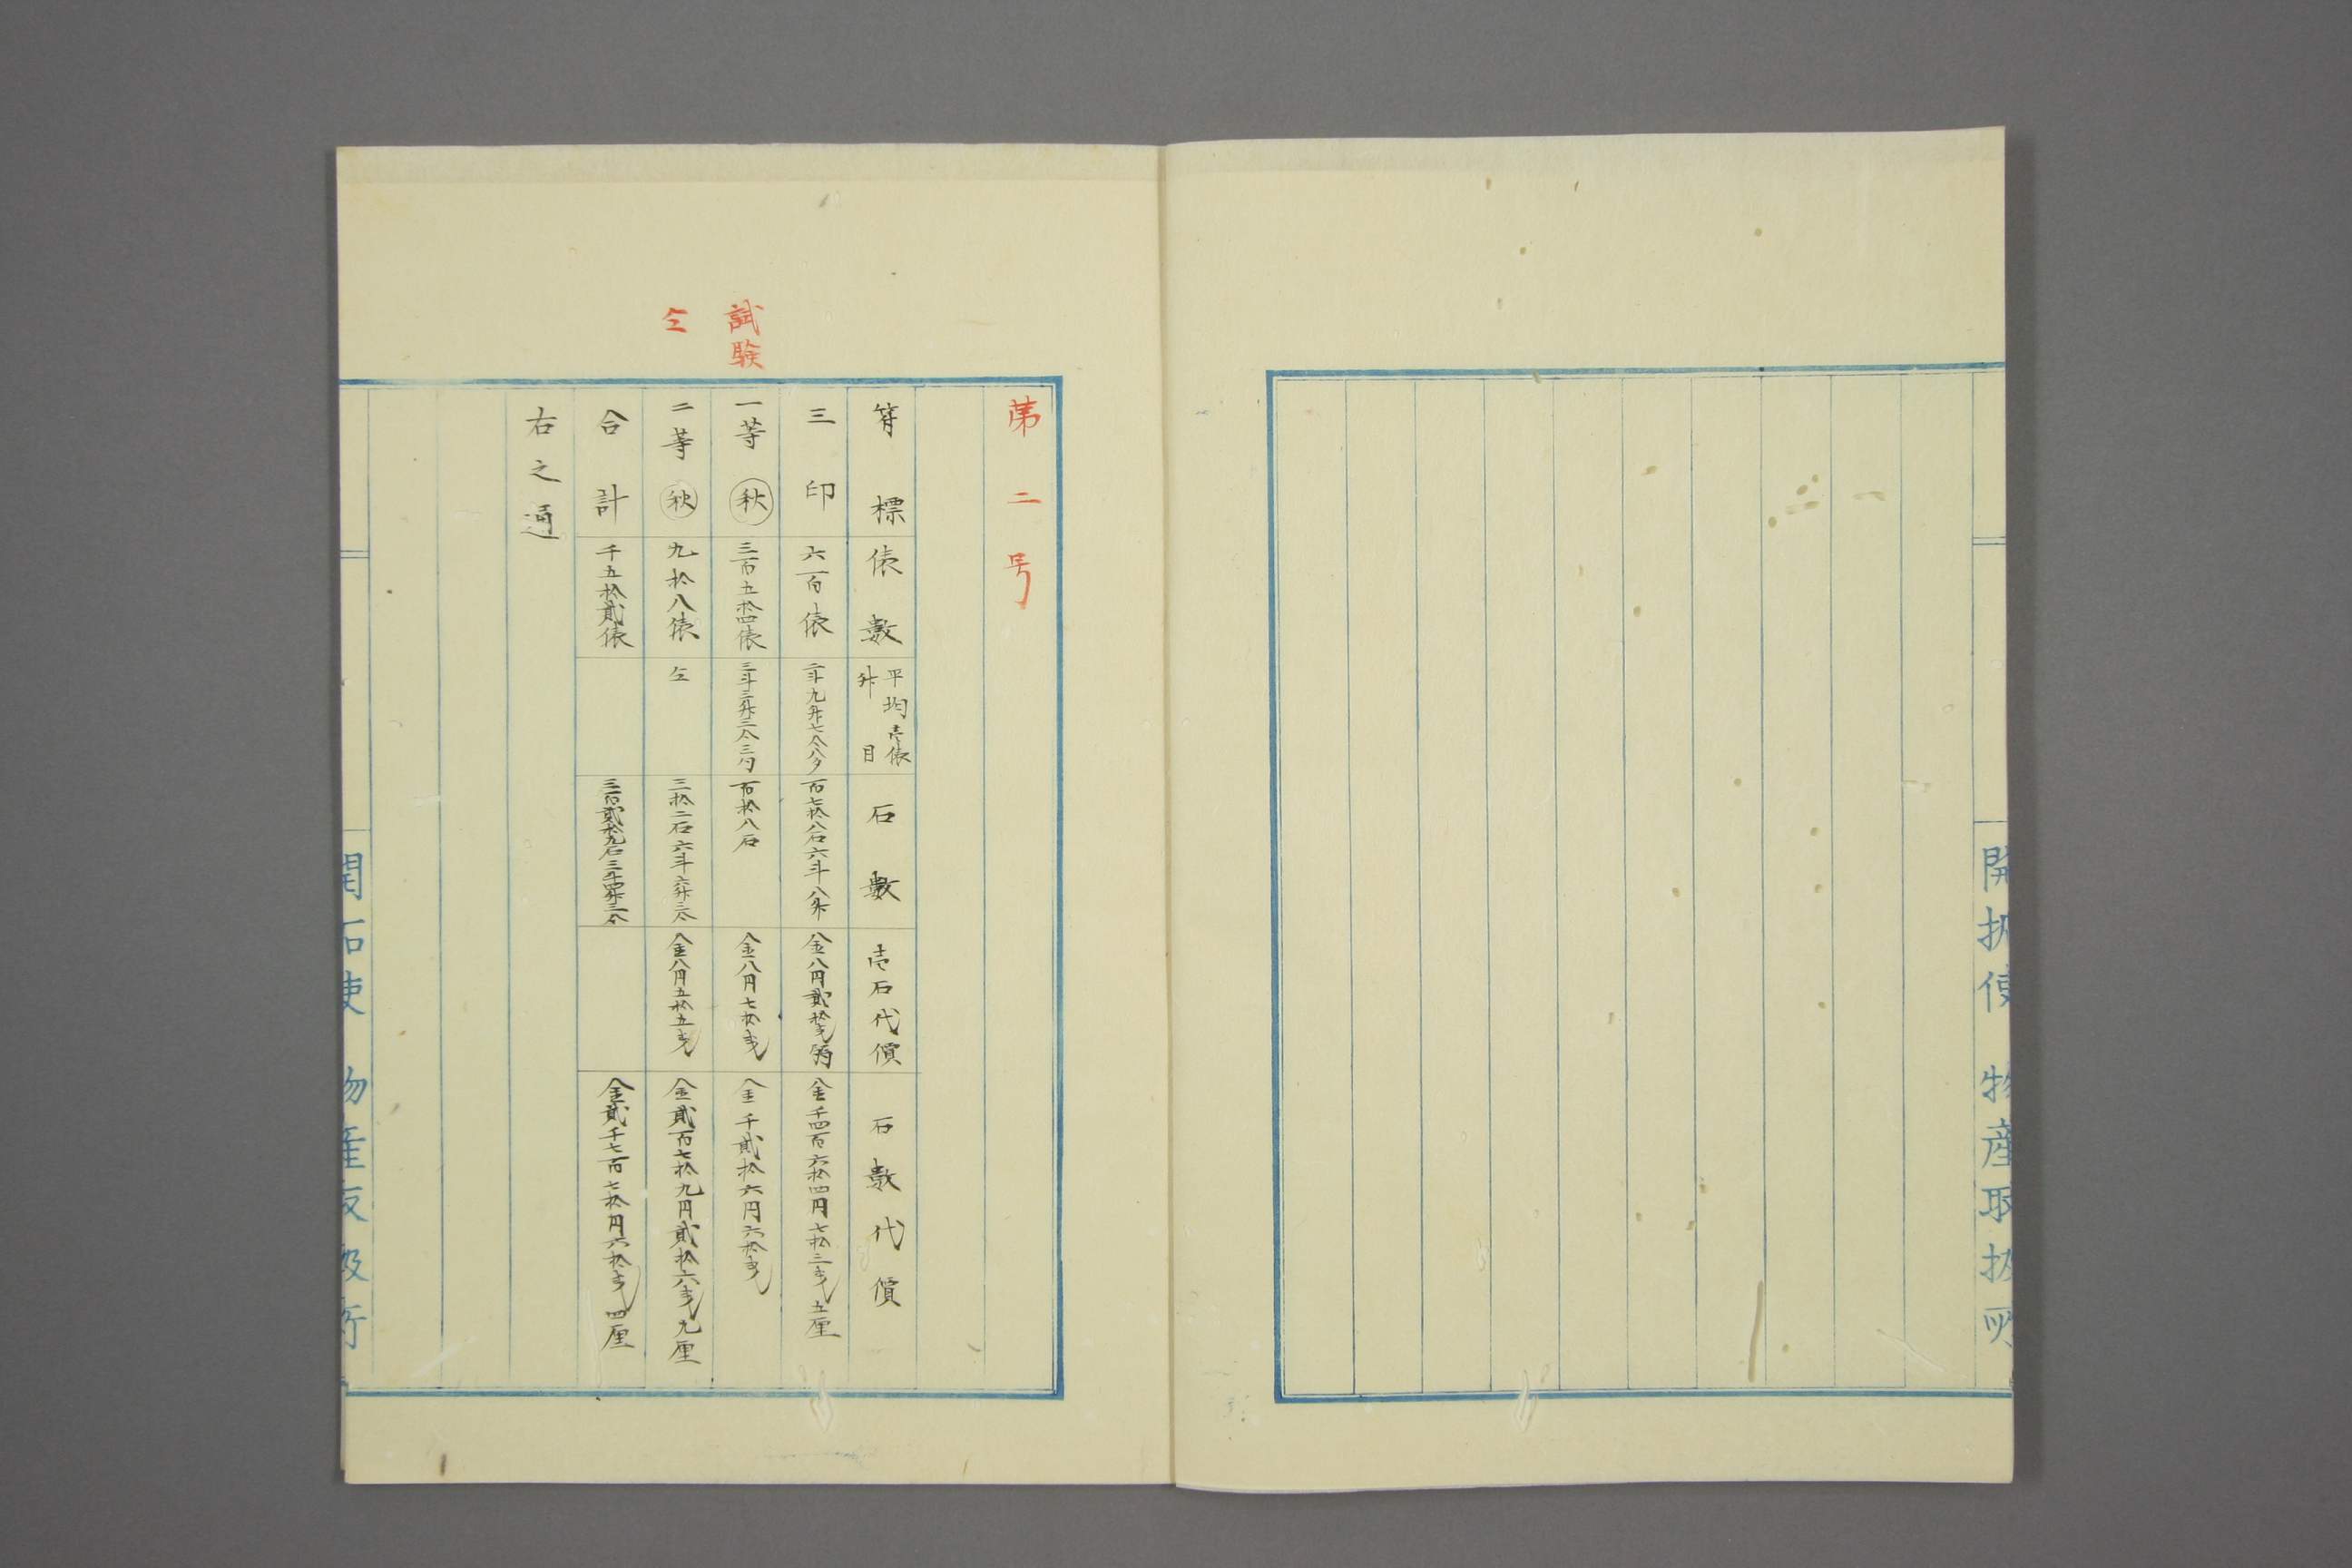 開拓使 物産取扱所
第二号
符標 俵數 平均壱俵升目 石數 壱石代價 石數代價
三印 六百俵 二斗九升七合八夕 百七拾八石六斗八升 金八円貳拾銭弱 金千四百六拾四円七拾三銭五厘
試験
一等㊙秋 三百五拾四俵 三斗三升三合三勺 百拾八石 金八円七拾銭 金千貳拾六円六拾銭
仝
二等秋 九拾八俵 仝 三拾二石六斗六升三合 金八円五拾五銭 金貳百七拾九円貳拾六銭九厘
合計 千五拾貳俵 三百貳拾九石三斗四升三合 金貳千七百七拾円六拾銭四厘
右之通
開拓使 物産取扱所